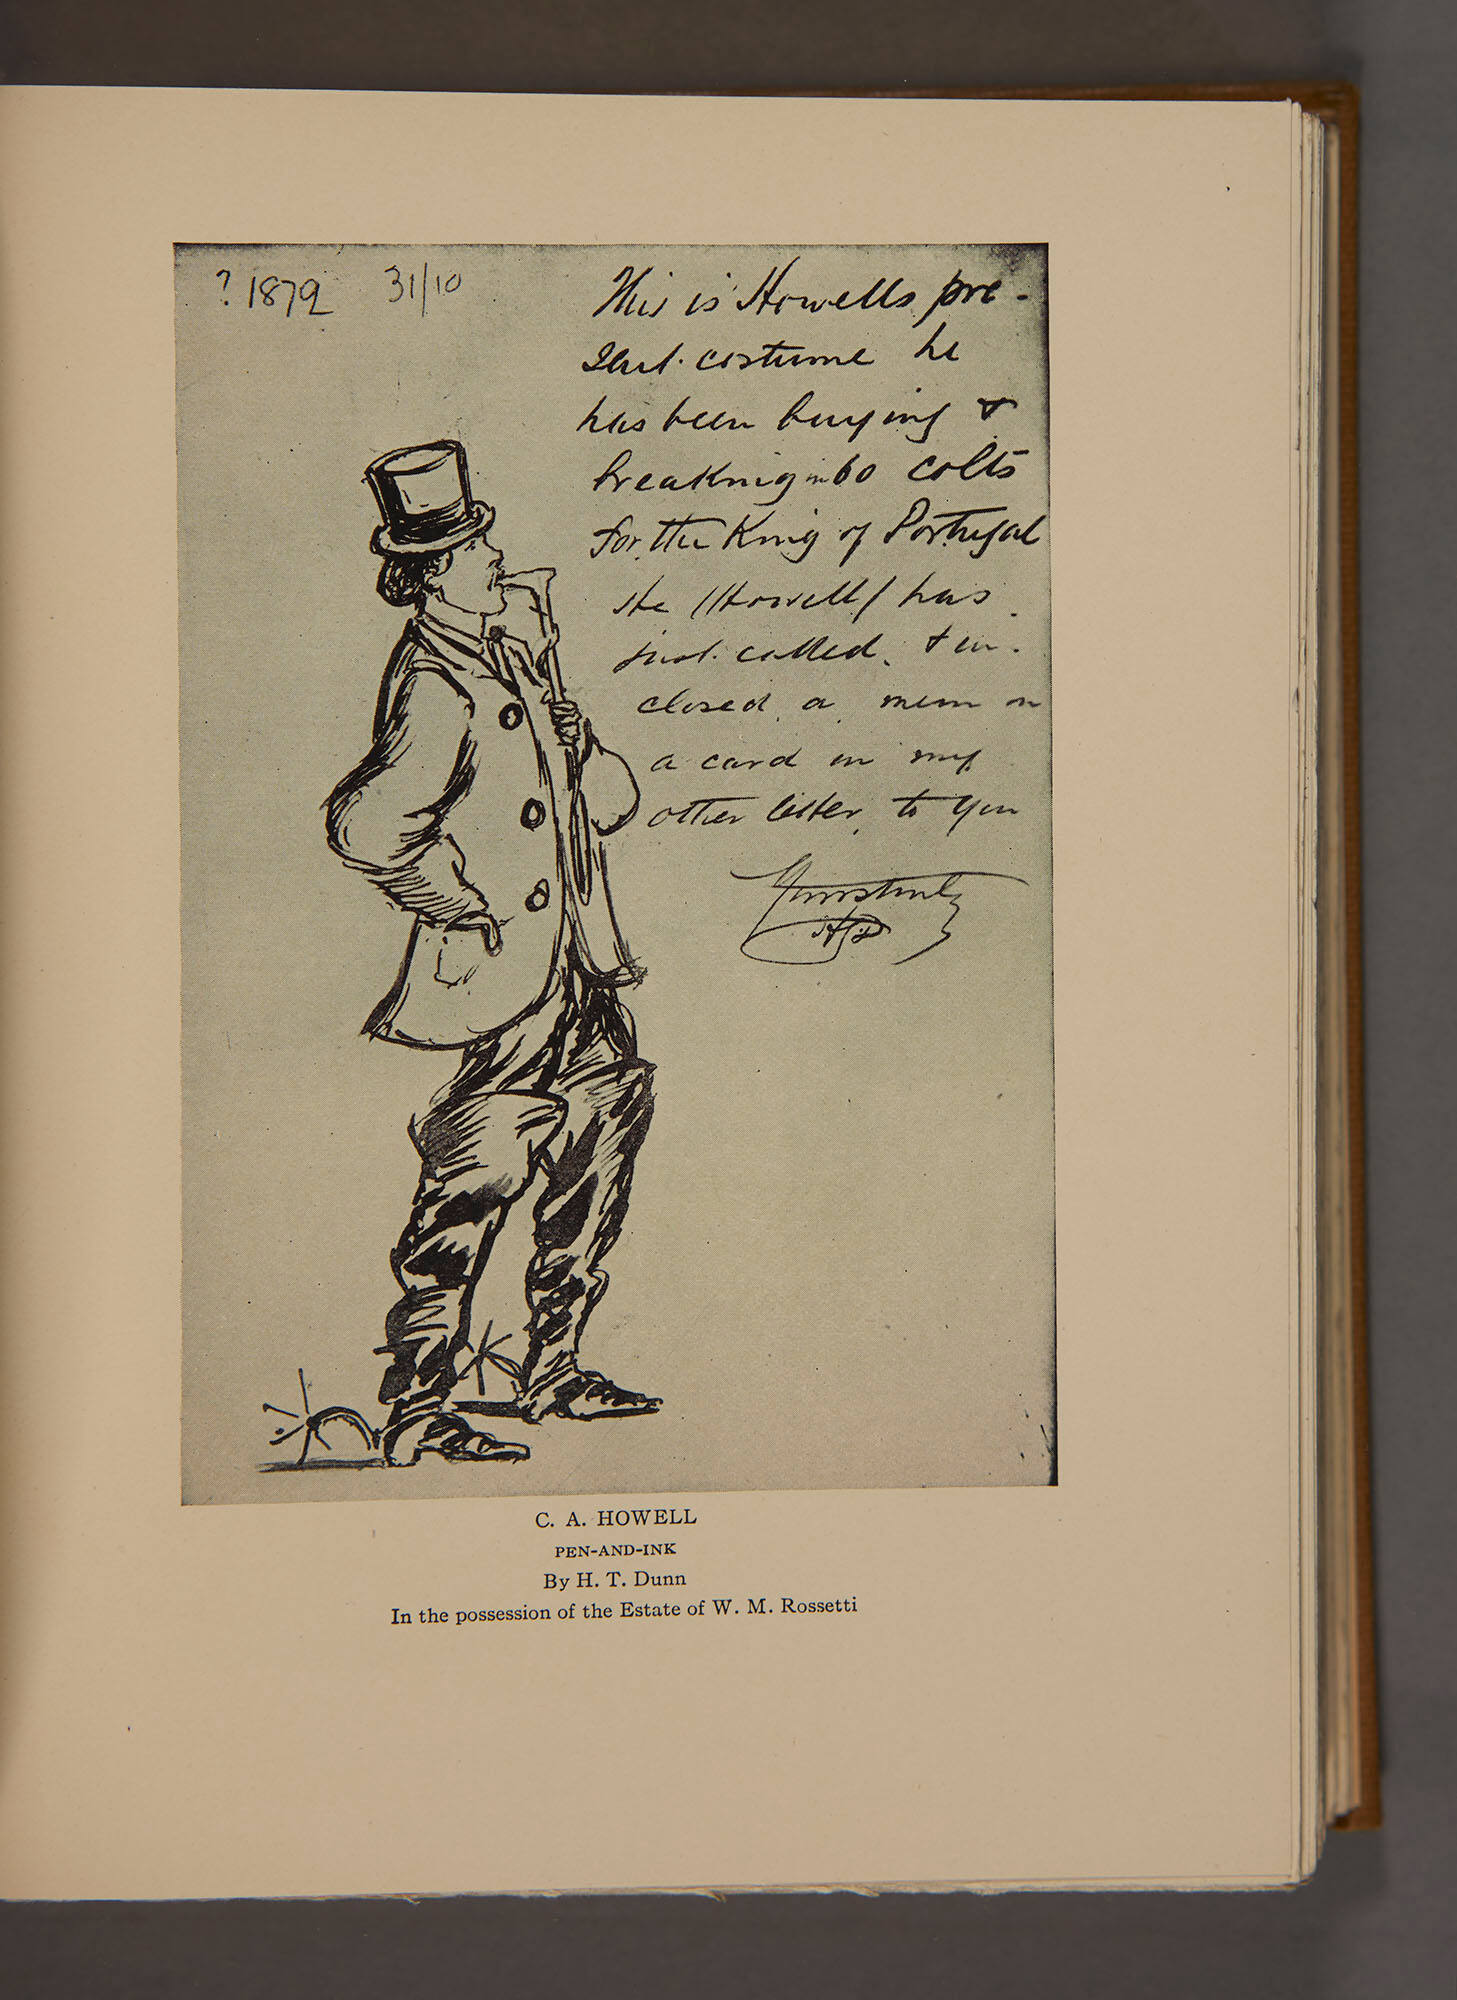 ? 1879 31/10
This is Howells pre-
sent costume he
has been buying &
breaking in 60 colts
for the King of Portugal
He (Howell) has
just called. & in-
closed a mem on
a card in my
other letter to you
C. A. HOWELL
PEN-AND-INK
By H. T. Dunn
In the possession of the Estate of W. M. Rossetti